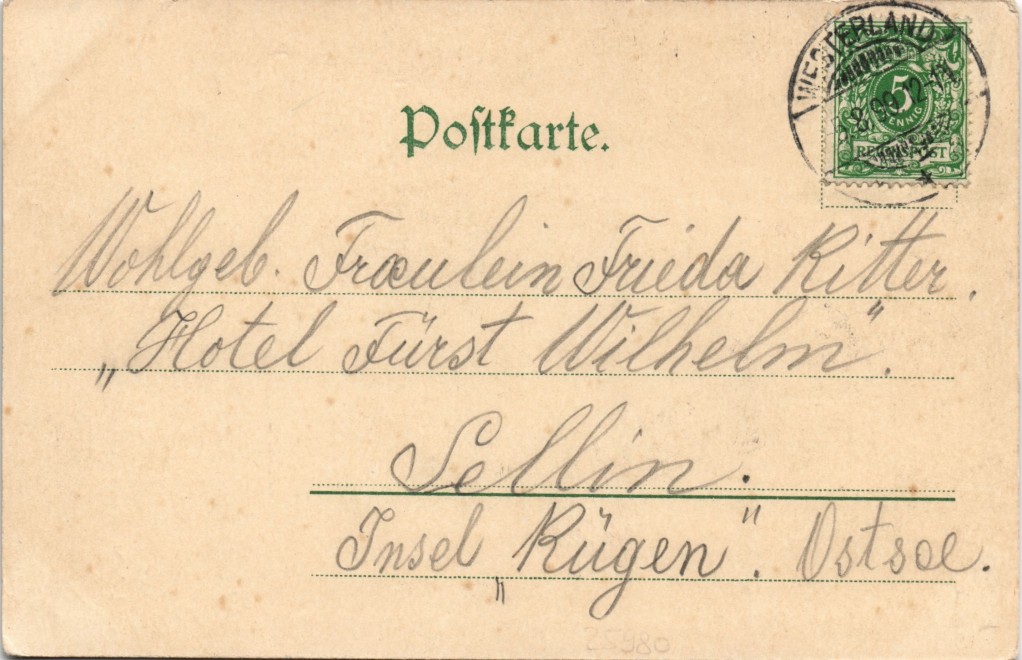 Postkarte.
WESTERLAND
8.99.12-1N
5
PFENNIG
REICHSPOST
Wohlgeb. Fraeulein Frieda Ritter.
„Hotel Fürst Wilhelm".
Sellin.
Insel „Rügen". Ostsee.
25980